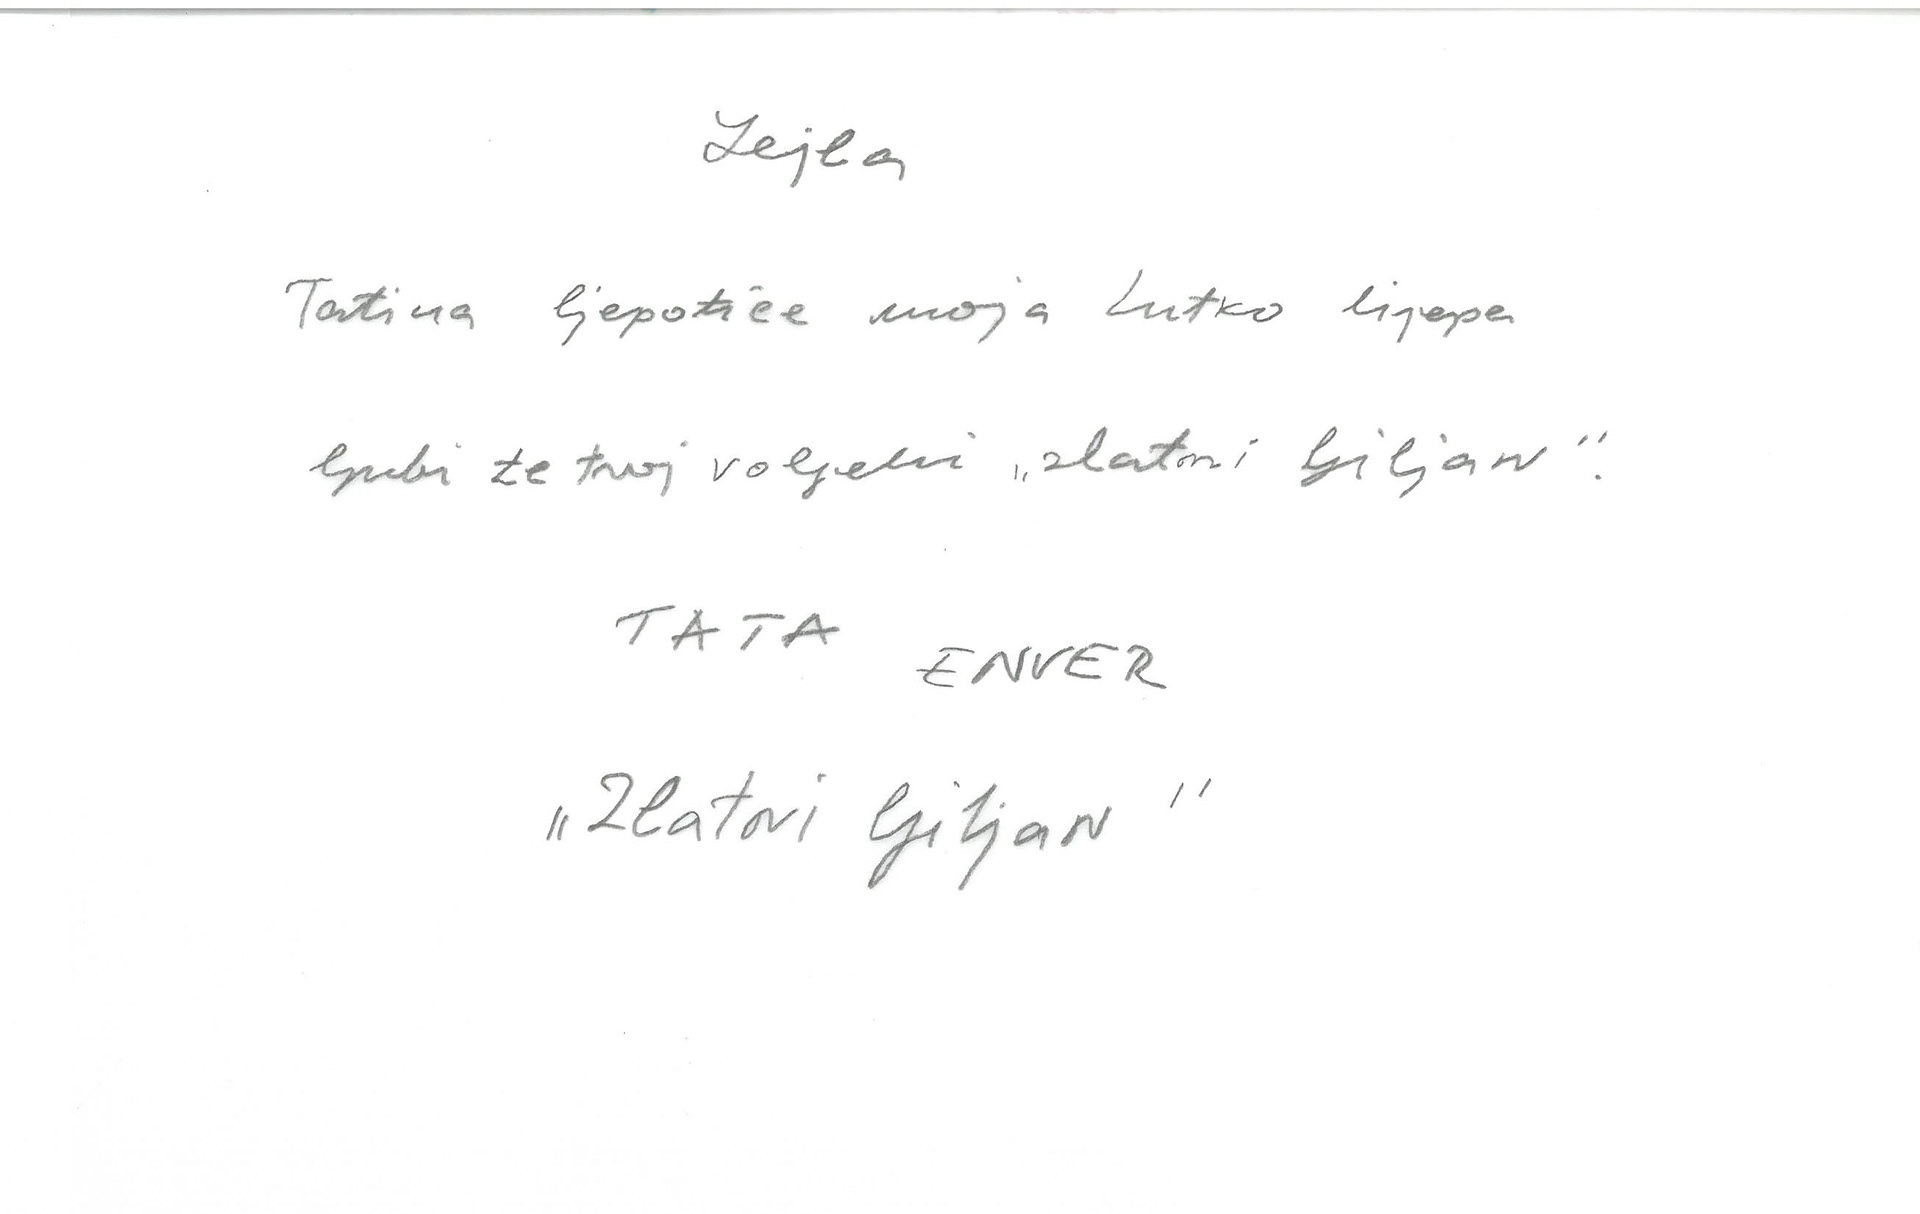 Lejla
Tatina ljepotice moja Lutko lijepa
ljubi te tvoj voljeni „zlatni ljiljan".
TATA ENVER
„Zlatni ljiljan"